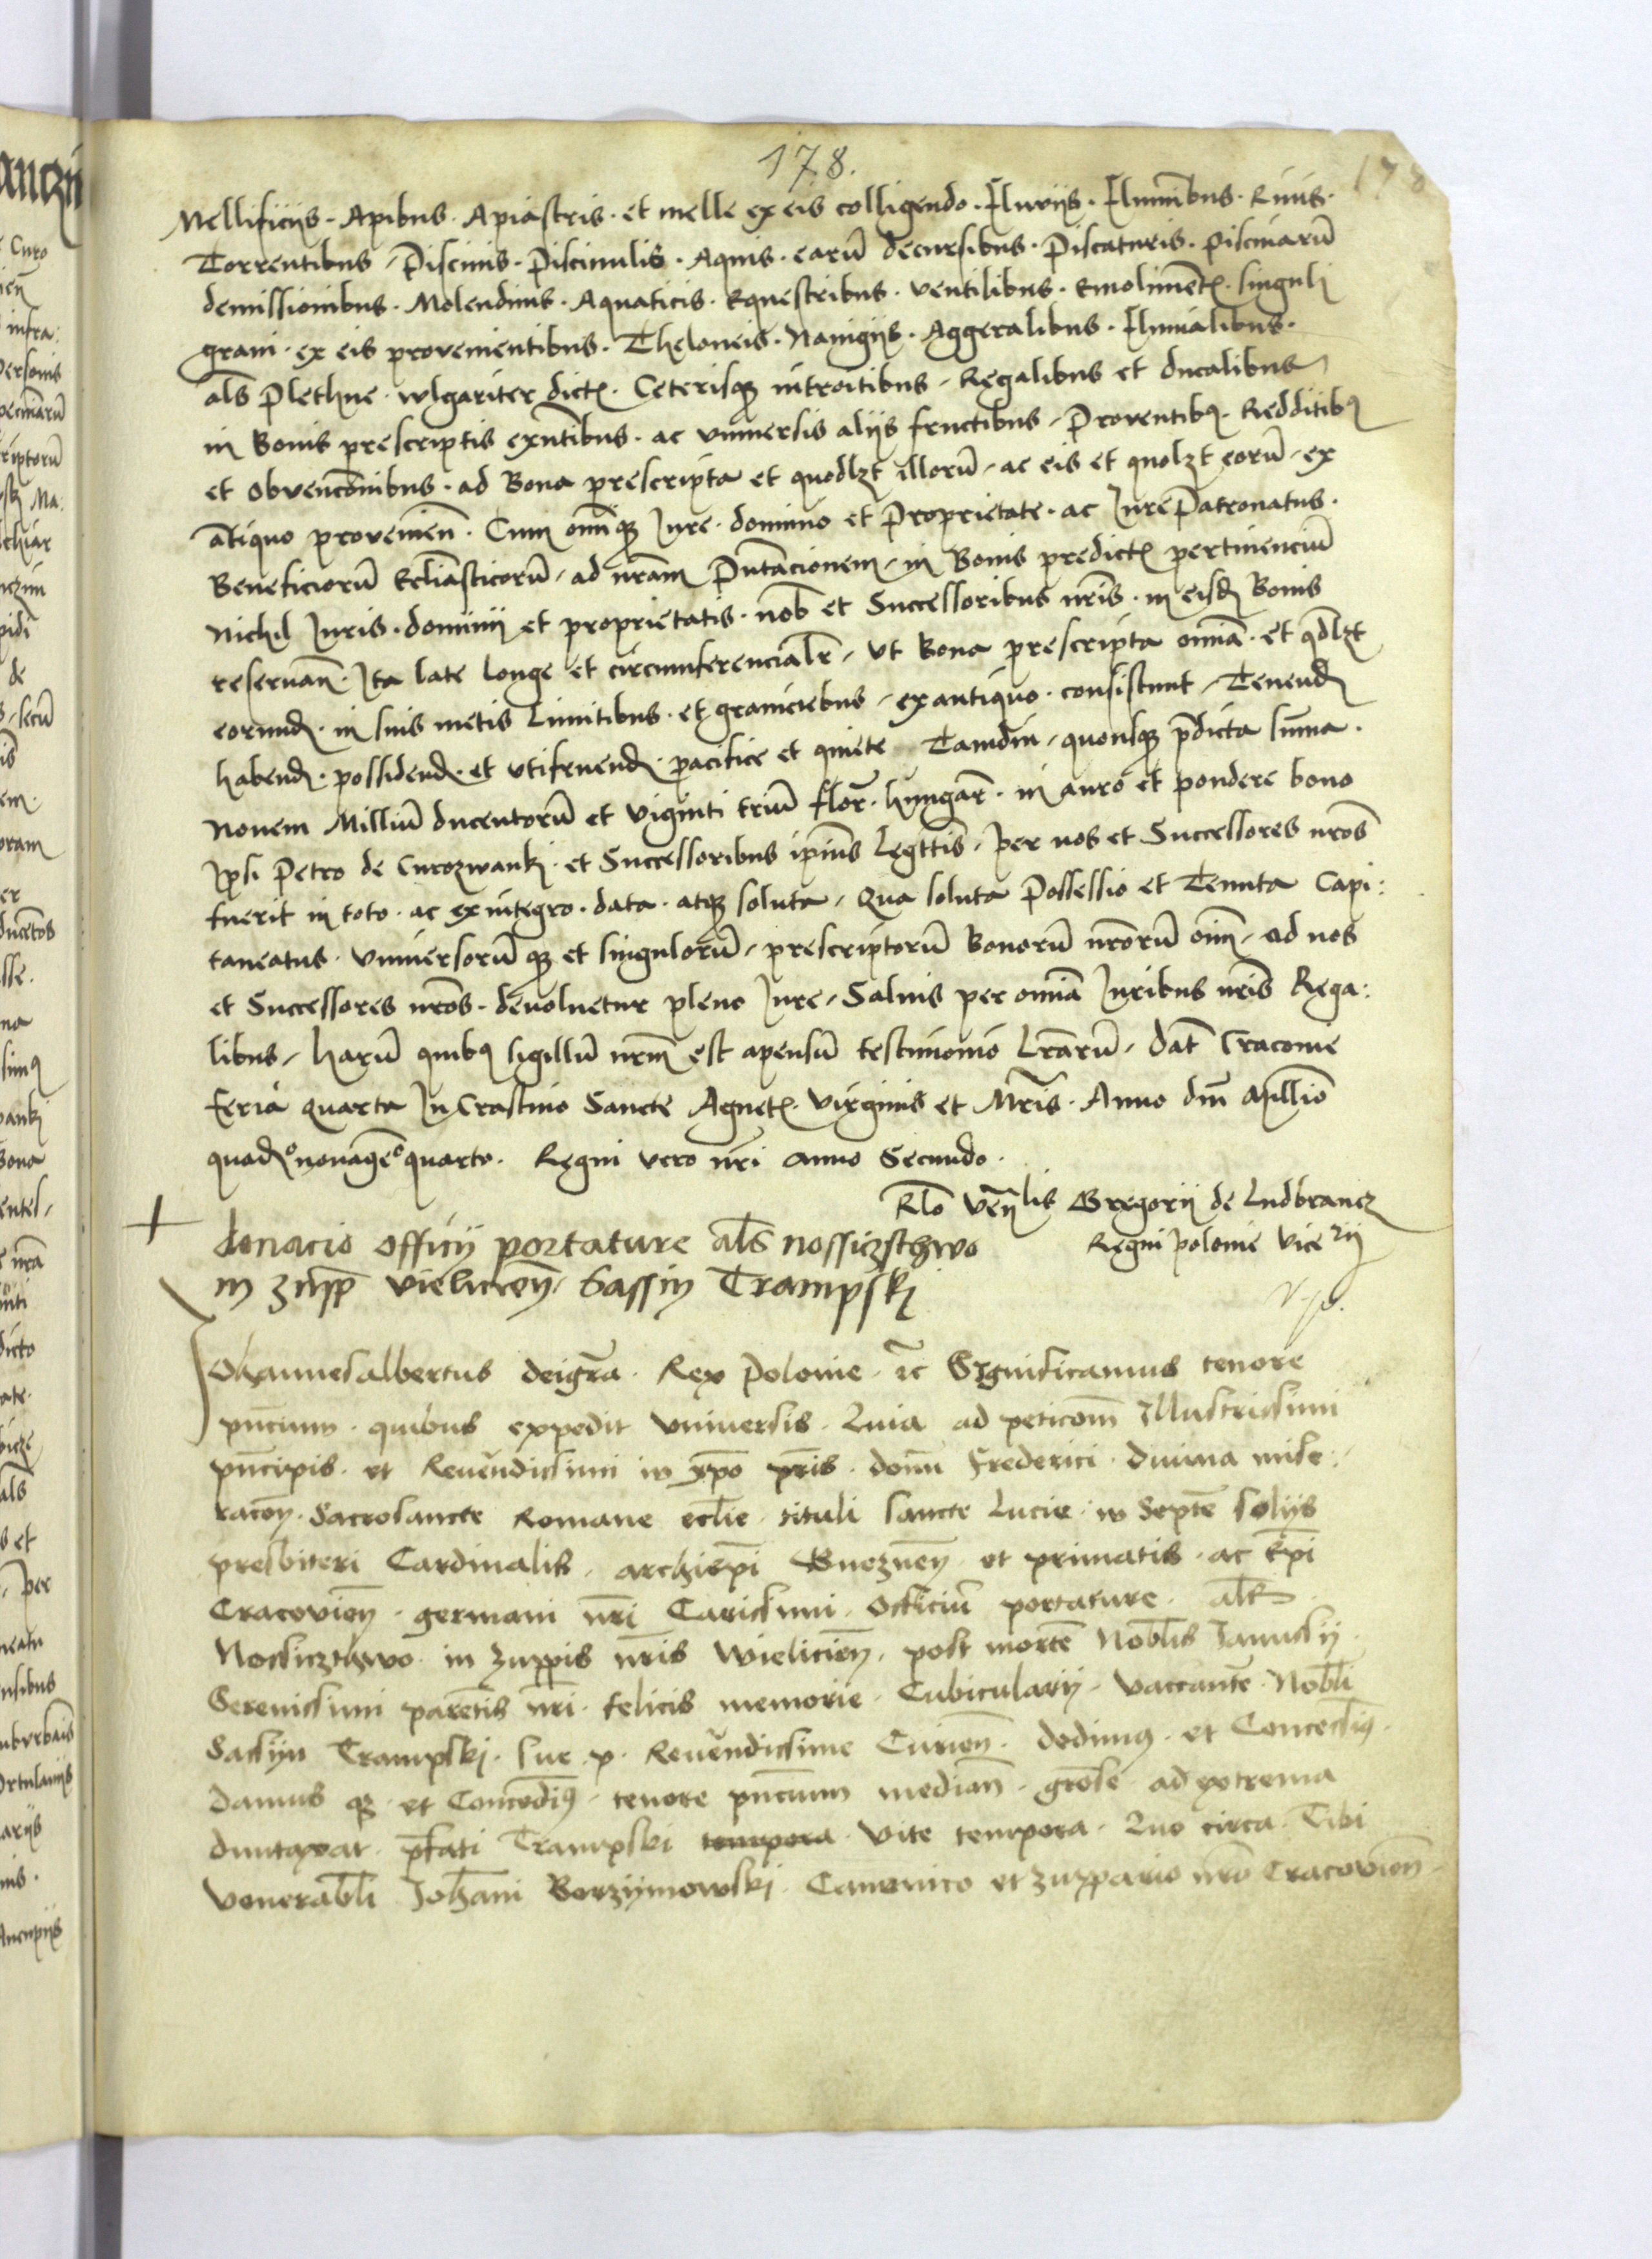 178.
178
Mellificiis · Apibus · Apiastris · et melle ex eis colligendo · Fluviis · Fluminibus · Rivis ·
Torrentibus / Piscinis · Piscinulis · Aquis · earū decursibus · Piscaturis · Piscinarū
demissionibus · Molendinis · Aquaticis · Equestribus · ventilibus · Emolimentꝭ · singuli
grani · ex eis provenientibus · Theloneis · Navigiis · Aggeralibus · Fluvialibus ·
als̄ Plethne · wlgariter dictꝭ · Ceterisqꝫ introitibus / Regalibus et ducalibus
in Bonis prescriptis exn̄tibus · ac universis aliis fructibus / Proventibꝰ · Redditibꝰ
et obvenc̄onibus · ad Bona prescripta et quodlꝫt illorū / ac eis et quolꝫt eorū / ex
ātiquo provenien̄ · Cum om̄iqꝫ Jure · dominio et Proprietate · ac Jure Patronatus ·
Beneficiorū Eccliasticorū / ad nrām Pn̄tacionem / in Bonis predictꝭ pertinenciū
Nichil Juris · dominii et proprietatis · nob̄ et Successoribus nrīs · in eisd̄ Bonis
reservan̄ · Ita late longe et circumferencialr̄ / ut Bona prescripta om̄ia · et qd̄lꝫt
eorund̄ · in suis metis Limitibus · et graniciebus / ex antiquo · consistunt / Tenend̄
habend̄ · possidend̄ · et utifruend̄ · pacifice et quiete Tamdiu / quousqꝫ p̄dicta sūma ·
Novem Milliū ducentorū et viginti triū flor̄ · hungar̄ · in auro et pondere bono
Ipsi Petro de Curozwanki · et Successoribus ipīus Legttīs / per nos et Successores nrōs
fuerit in toto · ac ex integro · data · atqꝫ soluta / Qua soluta Possessio et Tenuta Capi:
taneatus · Universorū qꝫ et singulorū / prescriptorū Bonorū nrōrū om̄i / ad nos
et Successores nrōs · devolvetur pleno Jure / Salvis per om̄ia Juribus nrīs Rega:
libus / harū quibꝰ sigillū nrm̄ est apensū testimonio Lrārū / dat̄ Cracovie
feria quarta In Crastino Sancte Agnetꝭ · Virginis et Mrīs · Anno dn̄i Mill̄io
quadͦ nonagēͦ quarto · Regni vero nrī anno Secundo ·
Rlō ven̄lis Gregorii de Ludbrancz
Regni Polonie vice rii
donacio officii portature als̄ nossiczsthwo
in zupp̄ vieliczen̄ / Sassin Trampski
Johannes albertus dei grā · Rex Polonie · ꝛc̄ Significamus tenore
pn̄cium · quibus expedit Universis · Quia ad peticōm Illustrissimi
pn̄cipis · et Revēndissimi in xp̄o pr̄is · domī Frederici · divina mise:
racōn · Sacrosancte Romane eccl̄ie · tituli sancte Lucie · in Septē soliis
presbiteri Cardinalis · archiep̄i Gneznen̄ · et primatis · ac Ep̄i
Cracovien̄ · germani nr̄i Carissimi · officiū portature · als̄
Nossiczthwo · in zuppis nr̄is Wielicien̄ · post mortē Nob̄lis Janussii ·
Serenissimi parētis nr̄i · felicis memorie · Cubicularii · vaccantē · Nob̄li
Sassijn Trampski · sue p · Revēndissime Curien̄ · dedimꝰ · et Concessiꝰ ·
damus qꝫ · et Concedīꝰ · tenore pn̄cium median̄ · grōse · ad extrema
duntaxat · p̄fati Trampski tempora · vite tempora · Quo circa · Tibi
venerabl̄i Johāni Borzijmowski · Canonico et zuppario nr̄o Cracovien̄ ·